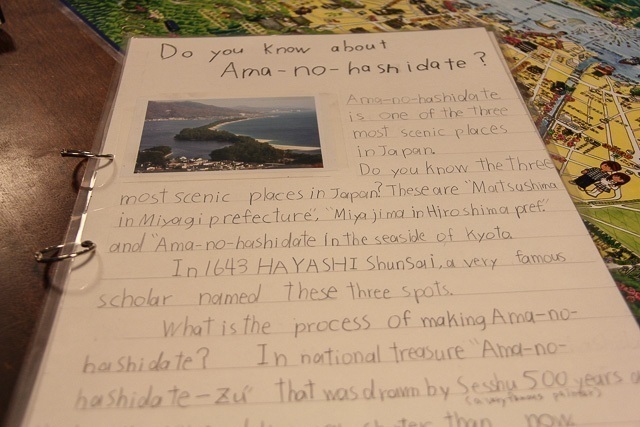 Do you know about
Ama-no-hashidate?
Ama-no-hashidate
is one of the three
most scenic places
in Japan.
Do you know the three
most scenic places in Japan? These are "Matsushima
in Miyagi prefecture", "Miyajima in Hiroshima pref."
and "Ama-no-hashidate in the seaside of Kyoto
In 1643 HAYASHI Shunsai, a very famous
scholar named these three spots.
What is the process of making Ama-no-
hashidate? In national treasure "Ama-no-
hashidate-zu" that was drawn by Sesshu 500 years
(a very famous painter)
than now